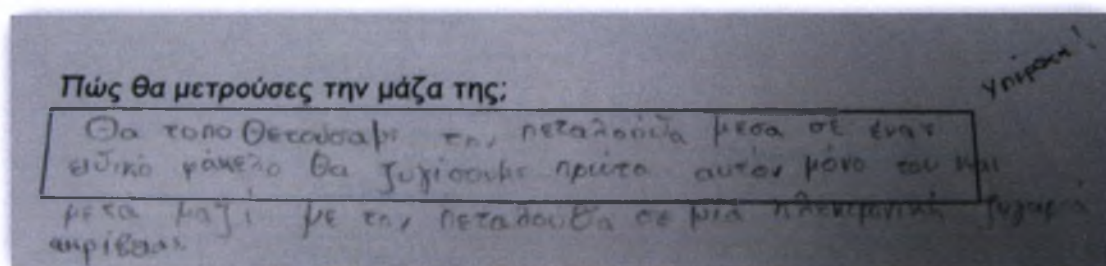 Υπέροχα!
Πώς θα μετρούσες την μάζα της;
Θα τοποθετούσαμε την πεταλούδα μέσα σε έναν
ειδικό φάκελο θα ζυγίσουμε πρώτα αυτόν μόνο του και
μετά μαζί με την πεταλούδα σε μια ηλεκτρονική ζυγαριά
ακρίβειας